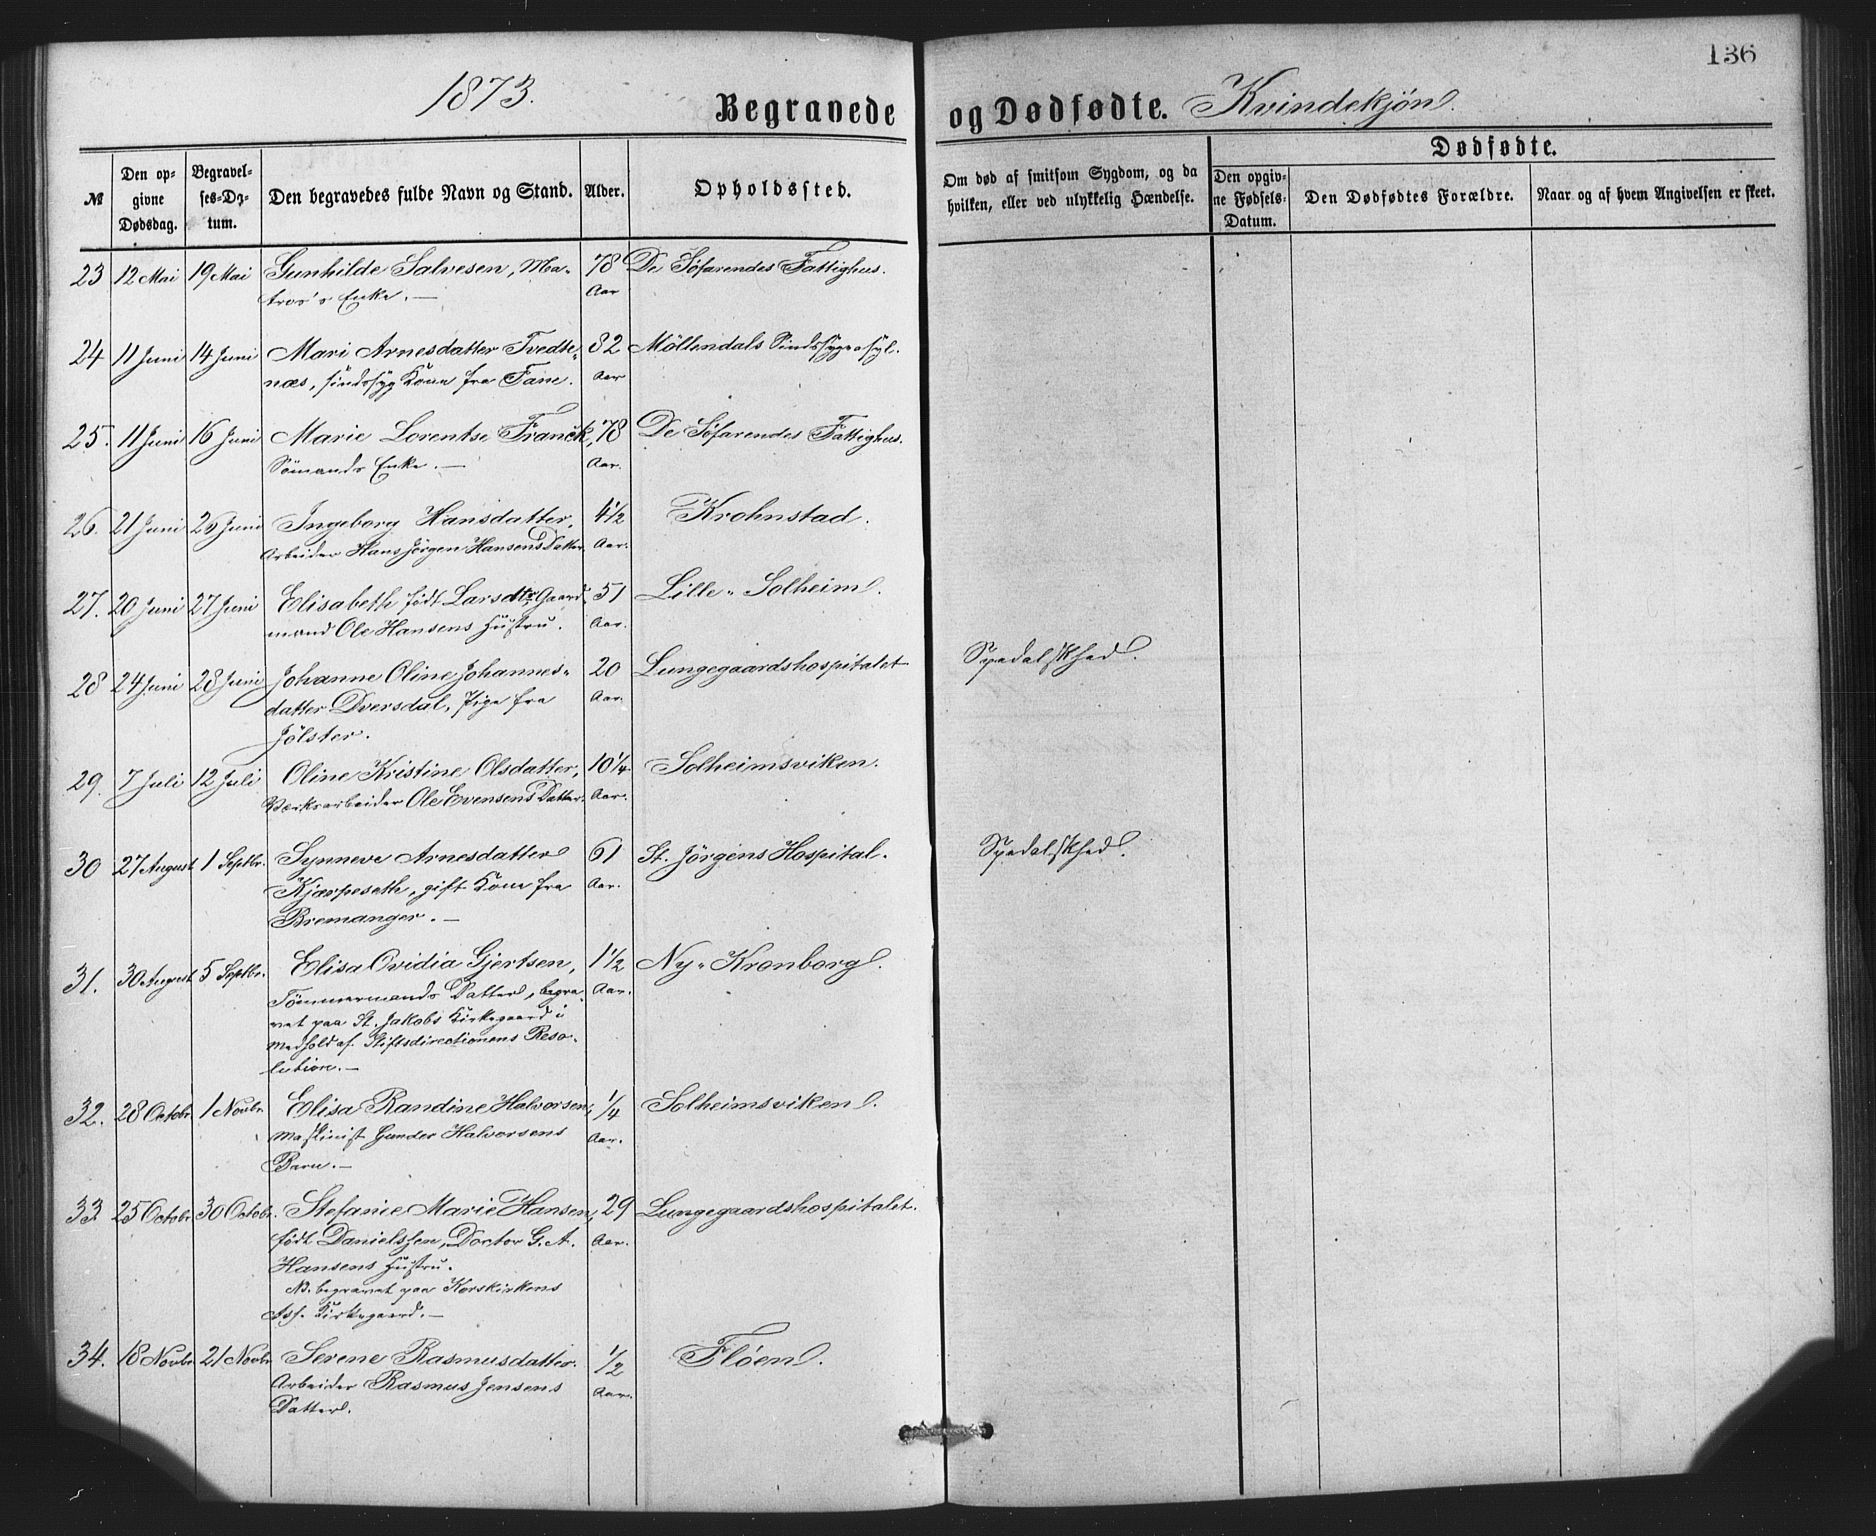 136
1873.
Begravede og Dødfødte. Kvindekjøn.
№
Den opgivne Dødsdag.
Begravelses-Datum.
Den begravedes fulde Navn og Stand.
Alder.
Opholdssted.
Om død af smitsom Sygdom, og da hvilken, eller ved ulykkelig Hændelse.
Dødfødte.
Den opgivne Fødsels-Datum.
Den Dødfødtes Forældre.
Naar og af hvem Angivelsen er skeet.
23 12 Mai 19 Mai Gunhilde Salvesen, Ma- 78 De Søfarendes Fattighus.
tros's Enke. — Aar
24 11 Juni 14 Juni Mari Arnesdatter Tvedte- 82 Möllendals Sindssygeasyl.
næs, sindssyg Kone fra Fane. Aar
25. 11 Juni 16 Juni Marie Lorentse Franck, 78 De Søfarendes Fattighus.
Sömands Enke. — Aar.
26. 21 Juni 26 Juni Ingeborg Hansdatter, 4½ Krohnstad.
Arbeider Hans Jörgen Hansens Datter. Aar.
27. 20 Juni 27 Juni Elisabeth født Larsdtr. Gaard- 51 Lille-Solheim.
mand Ole Hansens Hustru. Aar.
28 24 Juni 28 Juni Johanne Oline Johannes- 20 Lungegaardshospitalet Spedalskhed.
datter Dversdal, Pige fra Aar.
Jölster.
29. 7 Juli 12 Juli Oline Kristine Olsdatter, 10¼ Solheimsviken.
Værksarbeider Ole Evensens Datter. Aar.
30 27 August 1 Septbr. Synneve Arnesdatter 61 St. Jörgens Hospital. Spedalskhed.
Kjærpeseth, gift Kone fra Aar.
Bremanger. —
31. 30 August 5 Septbr. Elisa Ovidia Gjertsen, 1½ Ny-Kronborg.
Tömmermands Datter, begra- Aar.
vet paa St. Jakobs Kirkegaard i
Medhold af Stiftsdirectionens Reso-
lution. —
32. 28 Octobr. 1 Novbr. Elisa Randine Halvorsen, ¼ Solheimsviken.
Maskinist Gunder Halvorsens Aar.
Barn. —
33. 25 Octobr. 30 Octobr. Stefanie Marie Hansen, 29 Lungegaardshospitalet.
født Danielssen, Doctor G. A. Aar.
Hansens Hustru.
NB. begravet paa Korskirkens
Ass. Kirkegaard. —
34. 18 Novbr. 21 Novbr. Serene Rasmusdatter. ½ Fløen.
Arbeider Rasmus Jensens Aar.
Datter.